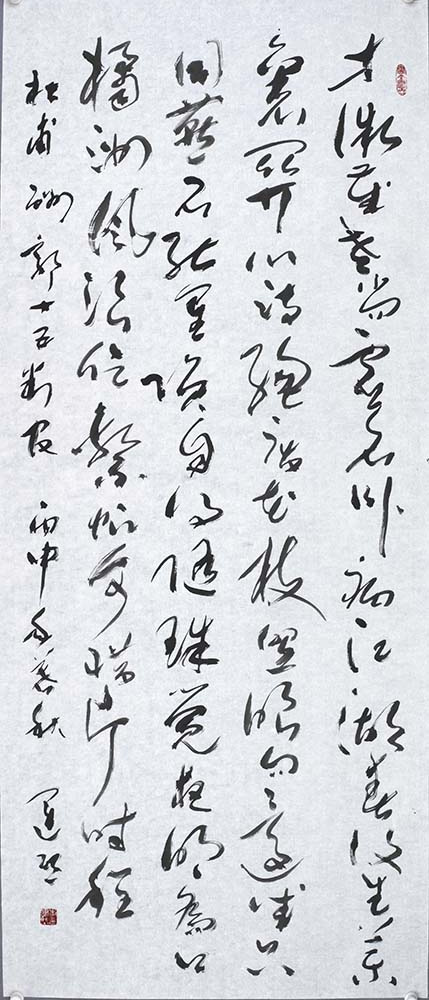 才微歲老尚虛名卧病江湖春復生藥
裹關心詩總廢花枝照眼句還成只
同燕石能星隕自得隋珠覺夜明喬口
橘洲風浪促繫帆何惜片時程
杜甫酬郭十五判官 丙申年暮秋